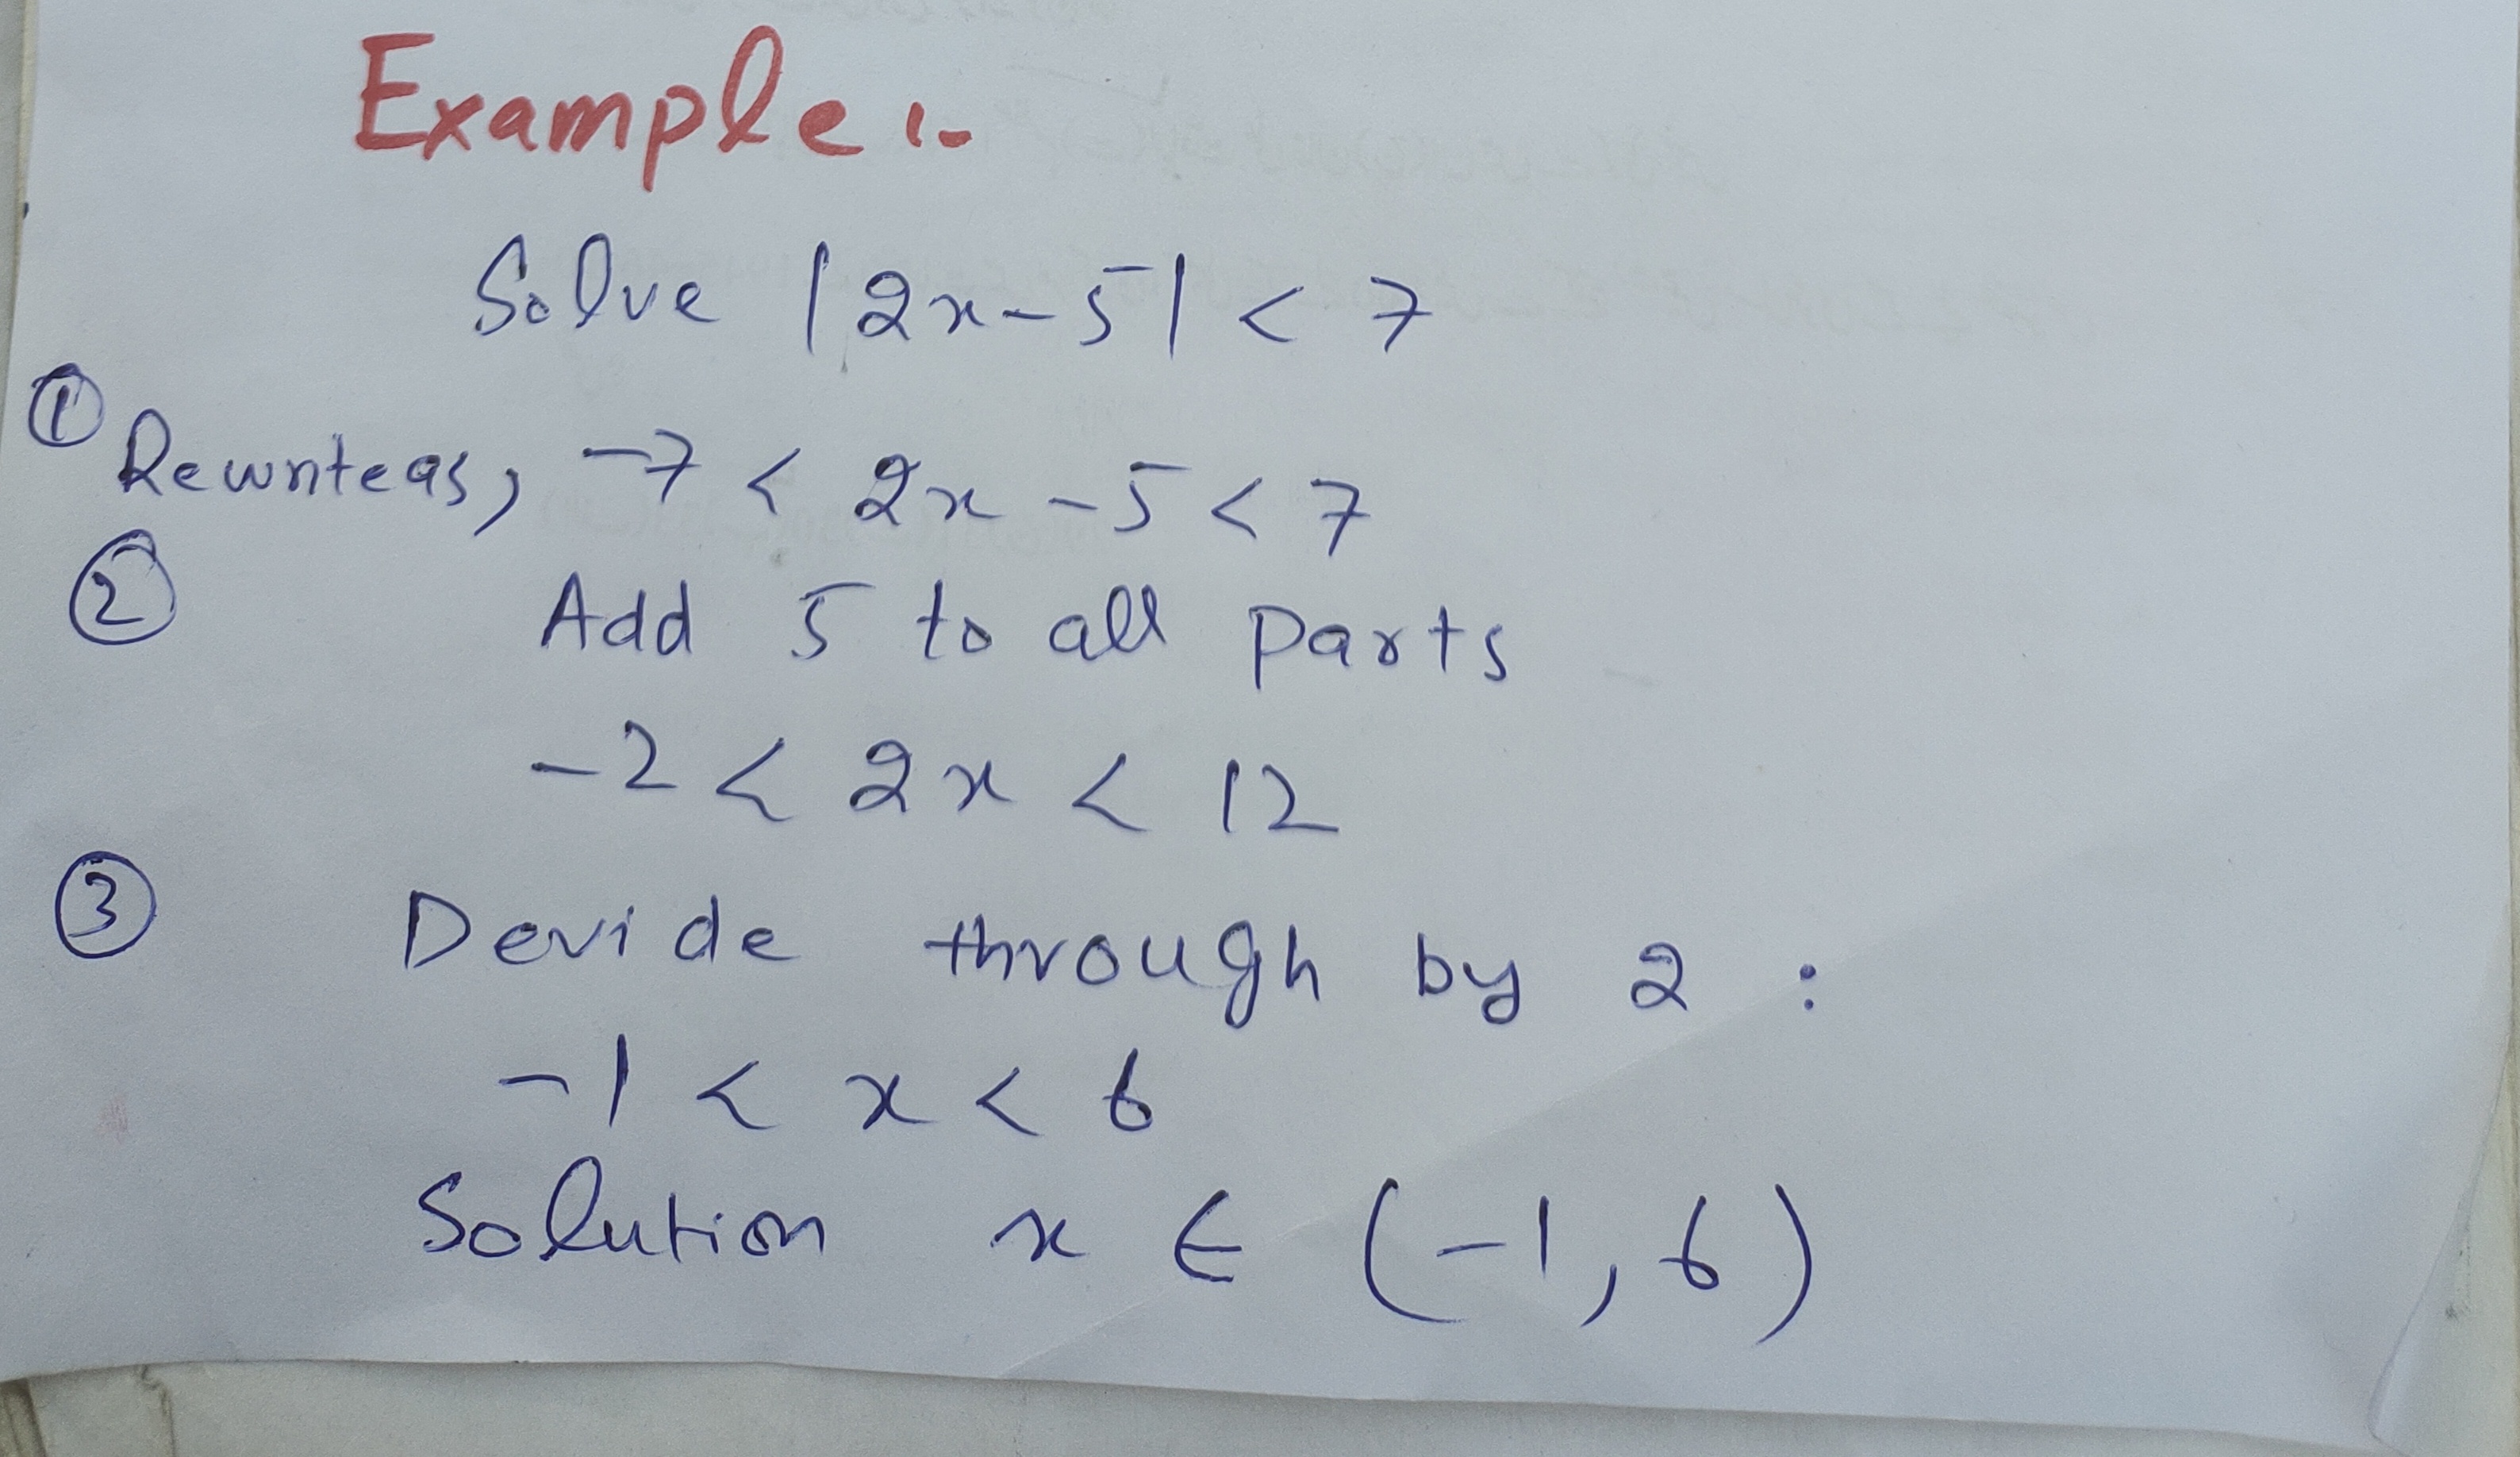 Example :-
Solve |2x-5| < 7
① Rewrite as, -7 < 2x - 5 < 7
② Add 5 to all parts
-2 < 2x < 12
③ Devide through by 2 :
-1 < x < 6
Solution x ∈ (-1, 6)